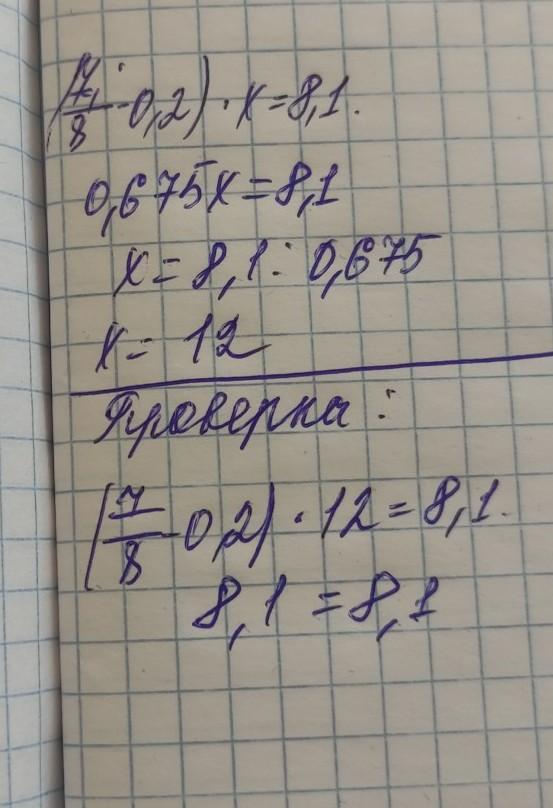 (7/8 - 0,2) · x = 8,1.
0,675x = 8,1
x = 8,1 : 0,675
x = 12
Проверка:
(7/8 - 0,2) · 12 = 8,1.
8,1 = 8,1